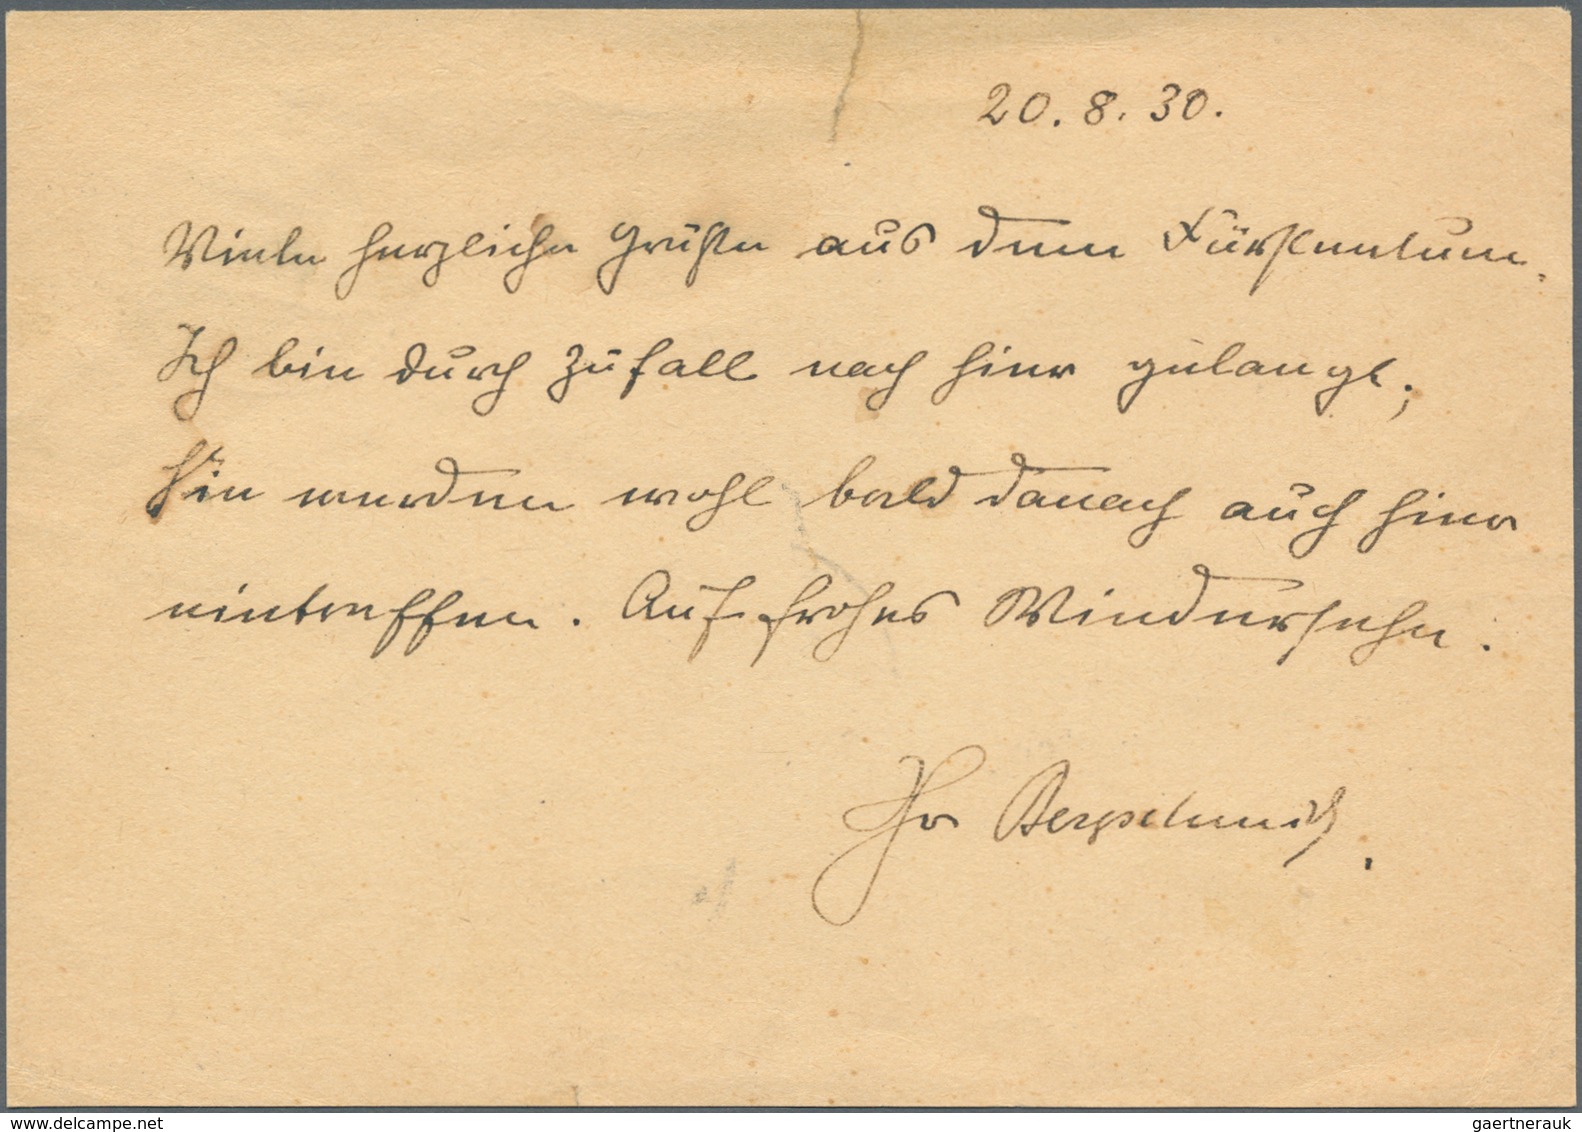 20.8.30.
Viele herzliche Grüße aus dem Fürstentum.
Ich bin durch Zufall nach hier gelangt;
Sie werden wohl bald danach auch hier
eintreffen. Auf frohes Wiedersehn.
Ihr
My-philately.com
gaertnerauk